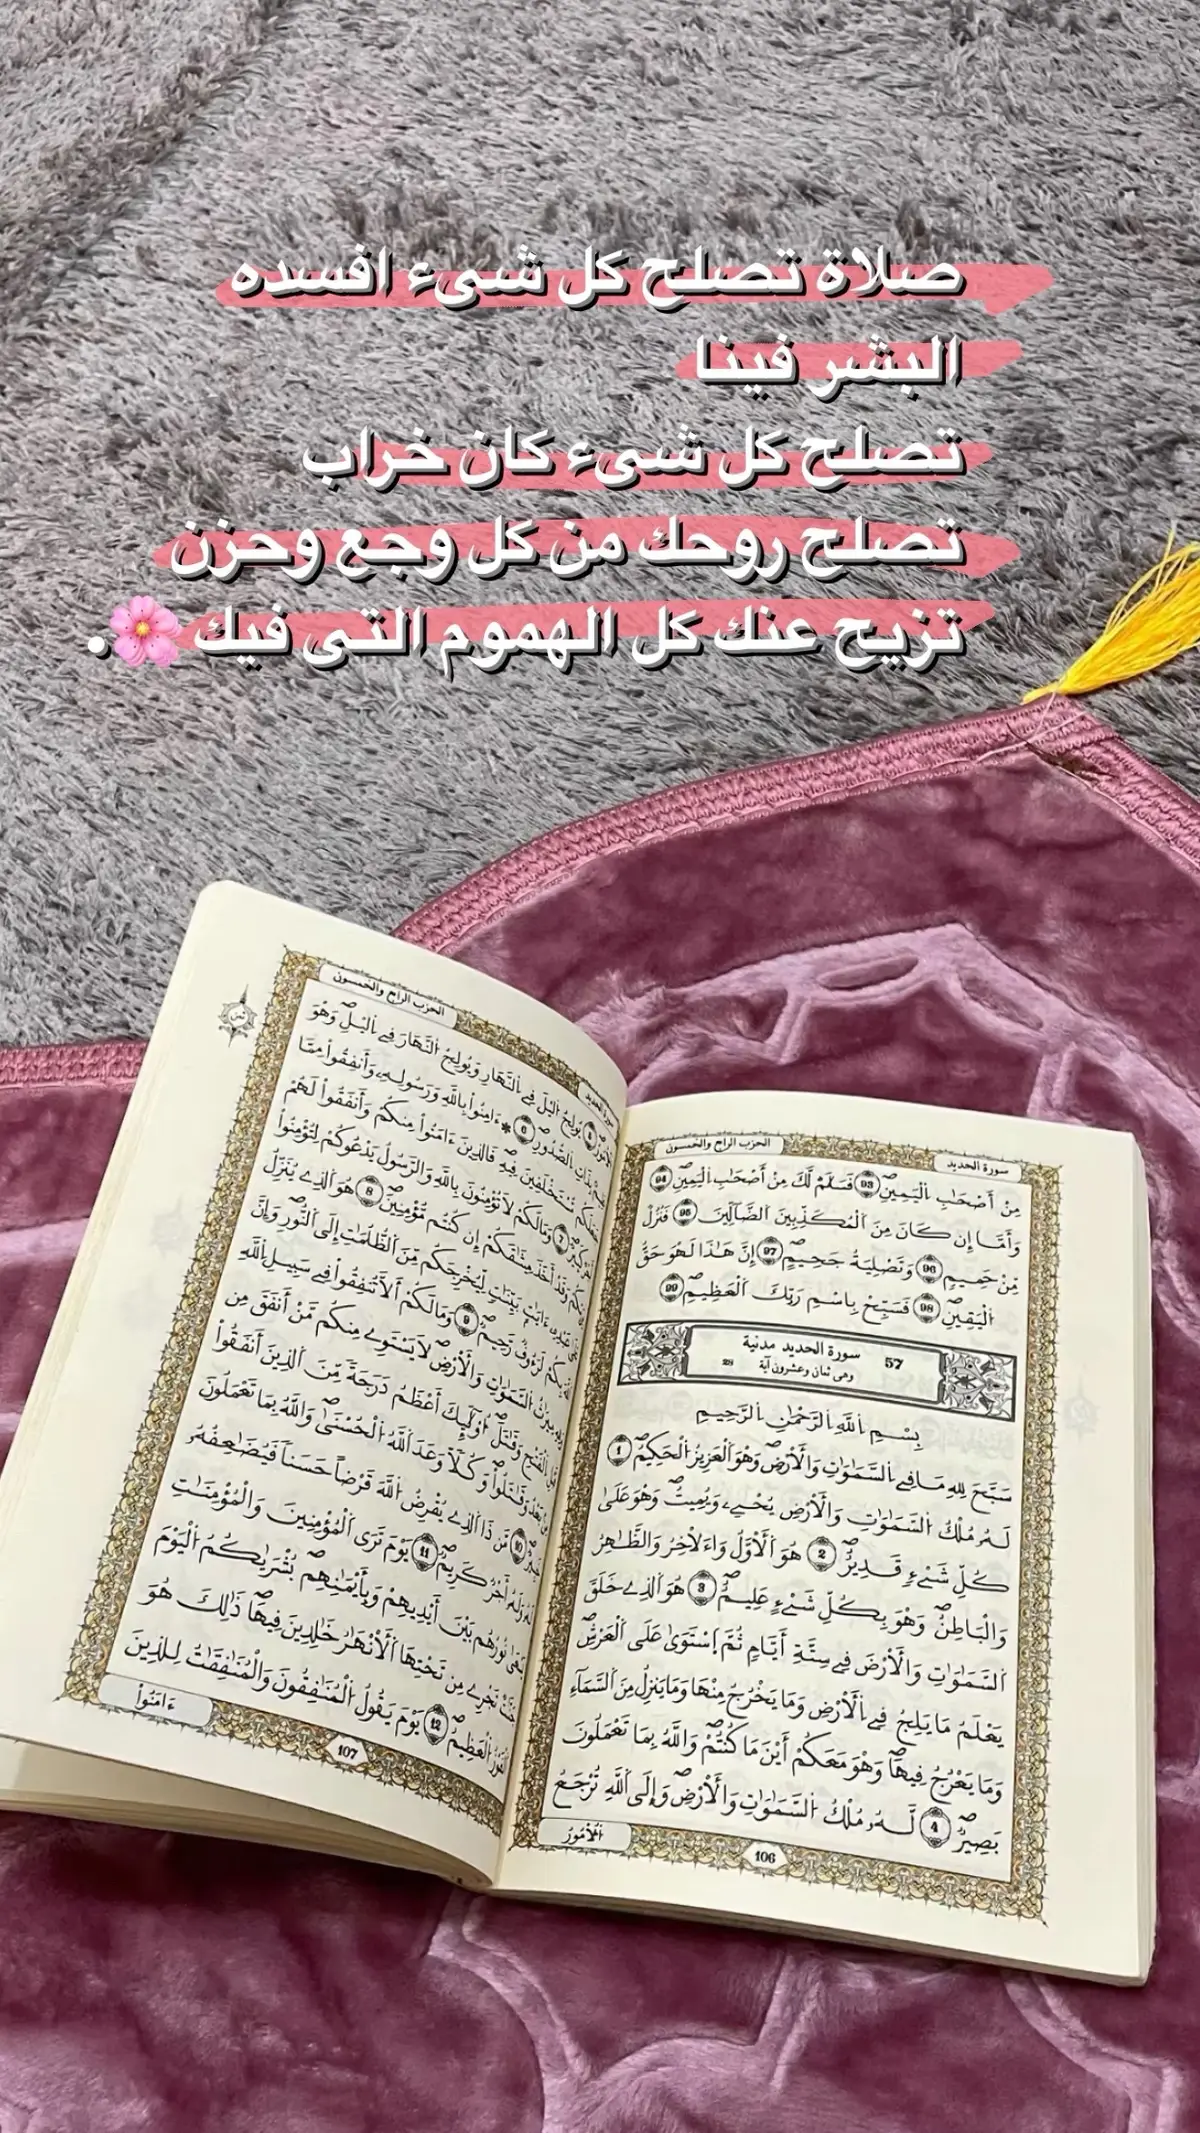 صلاة تصلح كل شىء افسده
البشر فينا
تصلح كل شىء كان خراب
تصلح روحك من كل وجع وحزن
تزيح عنك كل الهموم التى فيك🌸.
سورة الحديد
الحزب الرابع والخمسون
مِنْ أَصْحَٰبِ اِلْيَمِينِۖ 93 فَسَلَٰمٞ لَّكَ مِنْ أَصْحَٰبِ اِلْيَمِينِۖ 94
وَأَمَّا إِن كَانَ مِنَ اَلْمُكَذِّبِينَ اَلضَّآلِّينَ 95 فَنُزُلٞ
مِّنْ حَمِيمٖ 96 وَتَصْلِيَةُ جَحِيمٍۖ 97 إِنَّ هَٰذَا لَهُوَ حَقُّ
اُلْيَقِينِۖ 98 فَسَبِّحْ بِاسْمِ رَبِّكَ اَلْعَظِيمِۖ 99
57 سورة الحديد مدنية
وهى ثمان وعشرون آية 28
بِسْمِ اِللَّهِ اِلرَّحْمَٰنِ اِلرَّحِيمِ
سَبَّحَ لِلهِ مَا فِے اِلسَّمَٰوَٰتِ وَالْأَرْضِۖ وَهُوَ اَلْعَزِيزُ اُلْحَكِيمُۖ 1
لَهُۥ مُلْكُ اُلسَّمَٰوَٰتِ وَالْأَرْضِ يُحْيِے وَيُمِيتُۖ وَهُوَ عَلَىٰ
كُلِّ شَےْءٖ قَدِيرٌۖ 2 هُوَ اَلْأَوَّلُ وَالَاخِرُ وَالظَّٰهِرُ
وَالْبَاطِنُۖ وَهُوَ بِكُلِّ شَےْءٍ عَلِيمٌۖ 3 هُوَ اَلذِے خَلَقَ
اَلسَّمَٰوَٰتِ وَالْأَرْضَ فِے سِتَّةِ أَيَّامٖ ثُمَّ اَسْتَوَىٰ عَلَى اَلْعَرْشِۖ
يَعْلَمُ مَا يَلِجُ فِے اِلْأَرْضِ وَمَا يَخْرُجُ مِنْهَا وَمَا يَنزِلُ مِنَ اَلسَّمَآءِ
وَمَا يَعْرُجُ فِيهَاۖ وَهُوَ مَعَكُمُۥ أَيْنَ مَا كُنتُمْۖ وَاللَّهُ بِمَا تَعْمَلُونَ
بَصِيرٞۖ 4 لَّهُۥ مُلْكُ اُلسَّمَٰوَٰتِ وَالْأَرْضِۖ وَإِلَى اَللَّهِ تُرْجَعُ
اُلْأُمُورُ
106
سورة الحديد
الحزب الرابع والخمسون
ثمن
اُلْأُمُورُۖ 5 يُولِجُ اُليْلَ فِے اِلنَّهَارِ وَيُولِجُ اُلنَّهَارَ فِے اِليْلِۖ وَهُوَ
عَلِيمُۢ بِذَاتِ اِلصُّدُورِۖ 6 ءَامِنُواْ بِاللَّهِ وَرَسُولِهِۦ وَأَنفِقُواْ مِمَّا
جَعَلَكُم مُّسْتَخْلَفِينَ فِيهِۖ فَالذِينَ ءَامَنُواْ مِنكُمْ وَأَنفَقُواْ لَهُمُۥ
أَجْرٞ كَبِيرٞۖ 7 وَمَا لَكُمْ لَا تُؤْمِنُونَ بِاللَّهِ وَالرَّسُولُ يَدْعُوكُمْ لِتُؤْمِنُواْ
بِرَبِّكُمْ وَقَدْ أَخَذَ مِيثَٰقَكُمُۥ إِن كُنتُم مُّؤْمِنِينَۖ 8 هُوَ اَلذِے يُنَزِّلُ
عَلَىٰ عَبْدِهِۦ ءَايَٰتِۢ بَيِّنَٰتٖ لِّيُخْرِجَكُم مِّنَ اَلظُّلُمَٰتِ إِلَى اَلنُّورِۖ وَإِنَّ
اَللَّهَ بِكُمْ لَرَءُوفٞ رَّحِيمٞۖ 9 وَمَا لَكُمُۥ أَلَّا تُنفِقُواْ فِے سَبِيلِ اِللَّهِ
وَلِلهِ مِيرَٰثُ اُلسَّمَٰوَٰتِ وَالْأَرْضِۖ لَا يَسْتَوِے مِنكُم مَّنْ أَنفَقَ مِن
قَبْلِ اِلْفَتْحِ وَقَٰتَلَۖ أُوْلَٰٓئِكَ أَعْظَمُ دَرَجَةٗ مِّنَ اَلذِينَ أَنفَقُواْ
مِنۢ بَعْدُ وَقَٰتَلُواْۖ وَكُلّاٗ وَعَدَ اَللَّهُ اُلْحُسْنَىٰۖ وَاللَّهُ بِمَا تَعْمَلُونَ
خَبِيرٞۖ 10 مَّن ذَا اَلذِے يُقْرِضُ اُللَّهَ قَرْضاً حَسَناٗ فَيُضَٰعِفُهُۥ
لَهُۥ وَلَهُۥ أَجْرٞ كَرِيمٞۖ 11 يَوْمَ تَرَى اَلْمُؤْمِنِينَ وَالْمُؤْمِنَٰتِ
يَسْعَىٰ نُورُهُم بَيْنَ أَيْدِيهِمْ وَبِأَيْمَٰنِهِمۖ بُشْرَىٰكُمُ اُلْيَوْمَ
جَنَّٰتٞ تَجْرِے مِن تَحْتِهَا اَلْأَنْهَٰرُ خَٰلِدِينَ فِيهَاۖ ذَٰلِكَ هُوَ
اَلْفَوْزُ اُلْعَظِيمُۖ 12 يَوْمَ يَقُولُ اُلْمُنَٰفِقُونَ وَالْمُنَٰفِقَٰتُ لِلذِينَ
ءَامَنُواْ
107